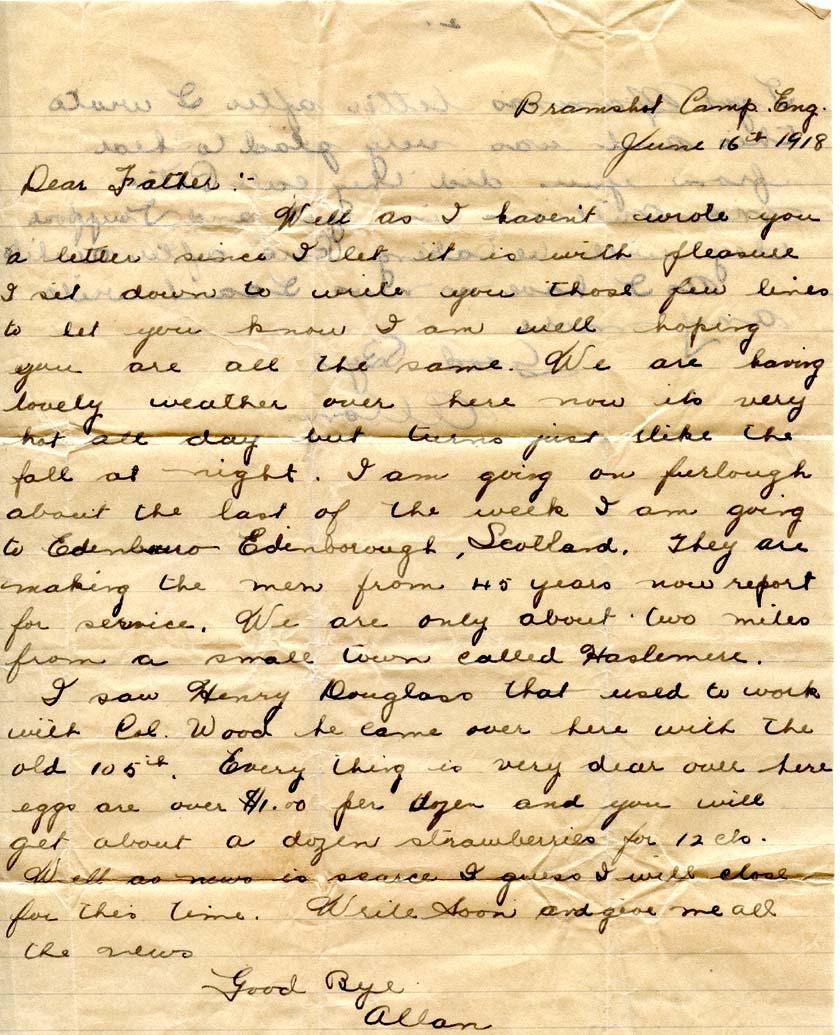 Bramshot Camp. Eng.
June 16th 1918
Dear Father :-
Well as I haven't wrote you
a letter since I let it is with pleasure
I set down to write you those few lines
to let you know I am well hoping
you are all the same. We are having
lovely weather over here now its very
hot all day but turns just like the
fall at night. I am going on furlough
about the last of the week I am going
to Edenburro Edinborough, Scotland. They are
making the men from 45 years now report
for service. We are only about two miles
from a small town called Haslemere.
I saw Henry Douglass that used to work
with Col. Wood he came over here with the
old 105th. Every thing is very dear over here
eggs are over $1.00 per dozen and you will
get about a dozen strawberries for 12 cts.
Well as news is scarce I guess I will close
for this time. Write soon and give me all
the news
Good Bye
Allan